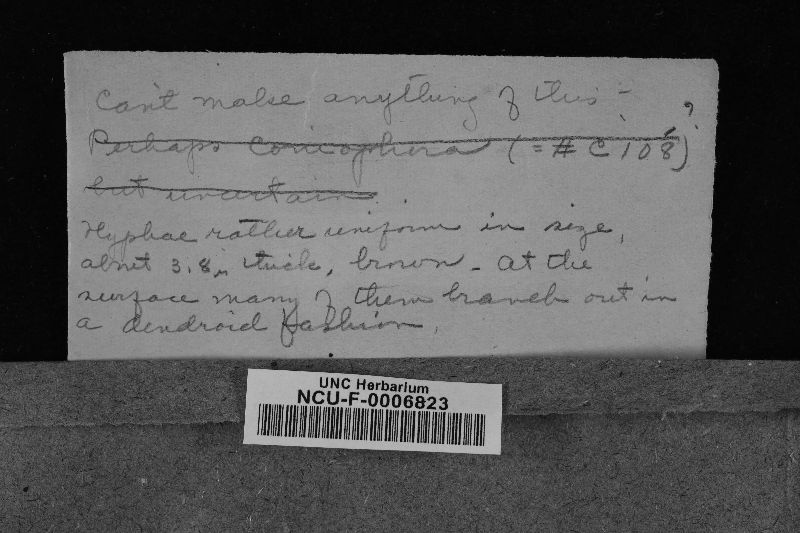 Can't make anything of this -
Perhaps Coniophora (= # C 108)?
but uncertain.
Hyphae rather uniform in size,
about 3.8µ thick, brown - at the
surface many of them branch out in
a dendroid fashion.
UNC Herbarium
NCU-F-0006823